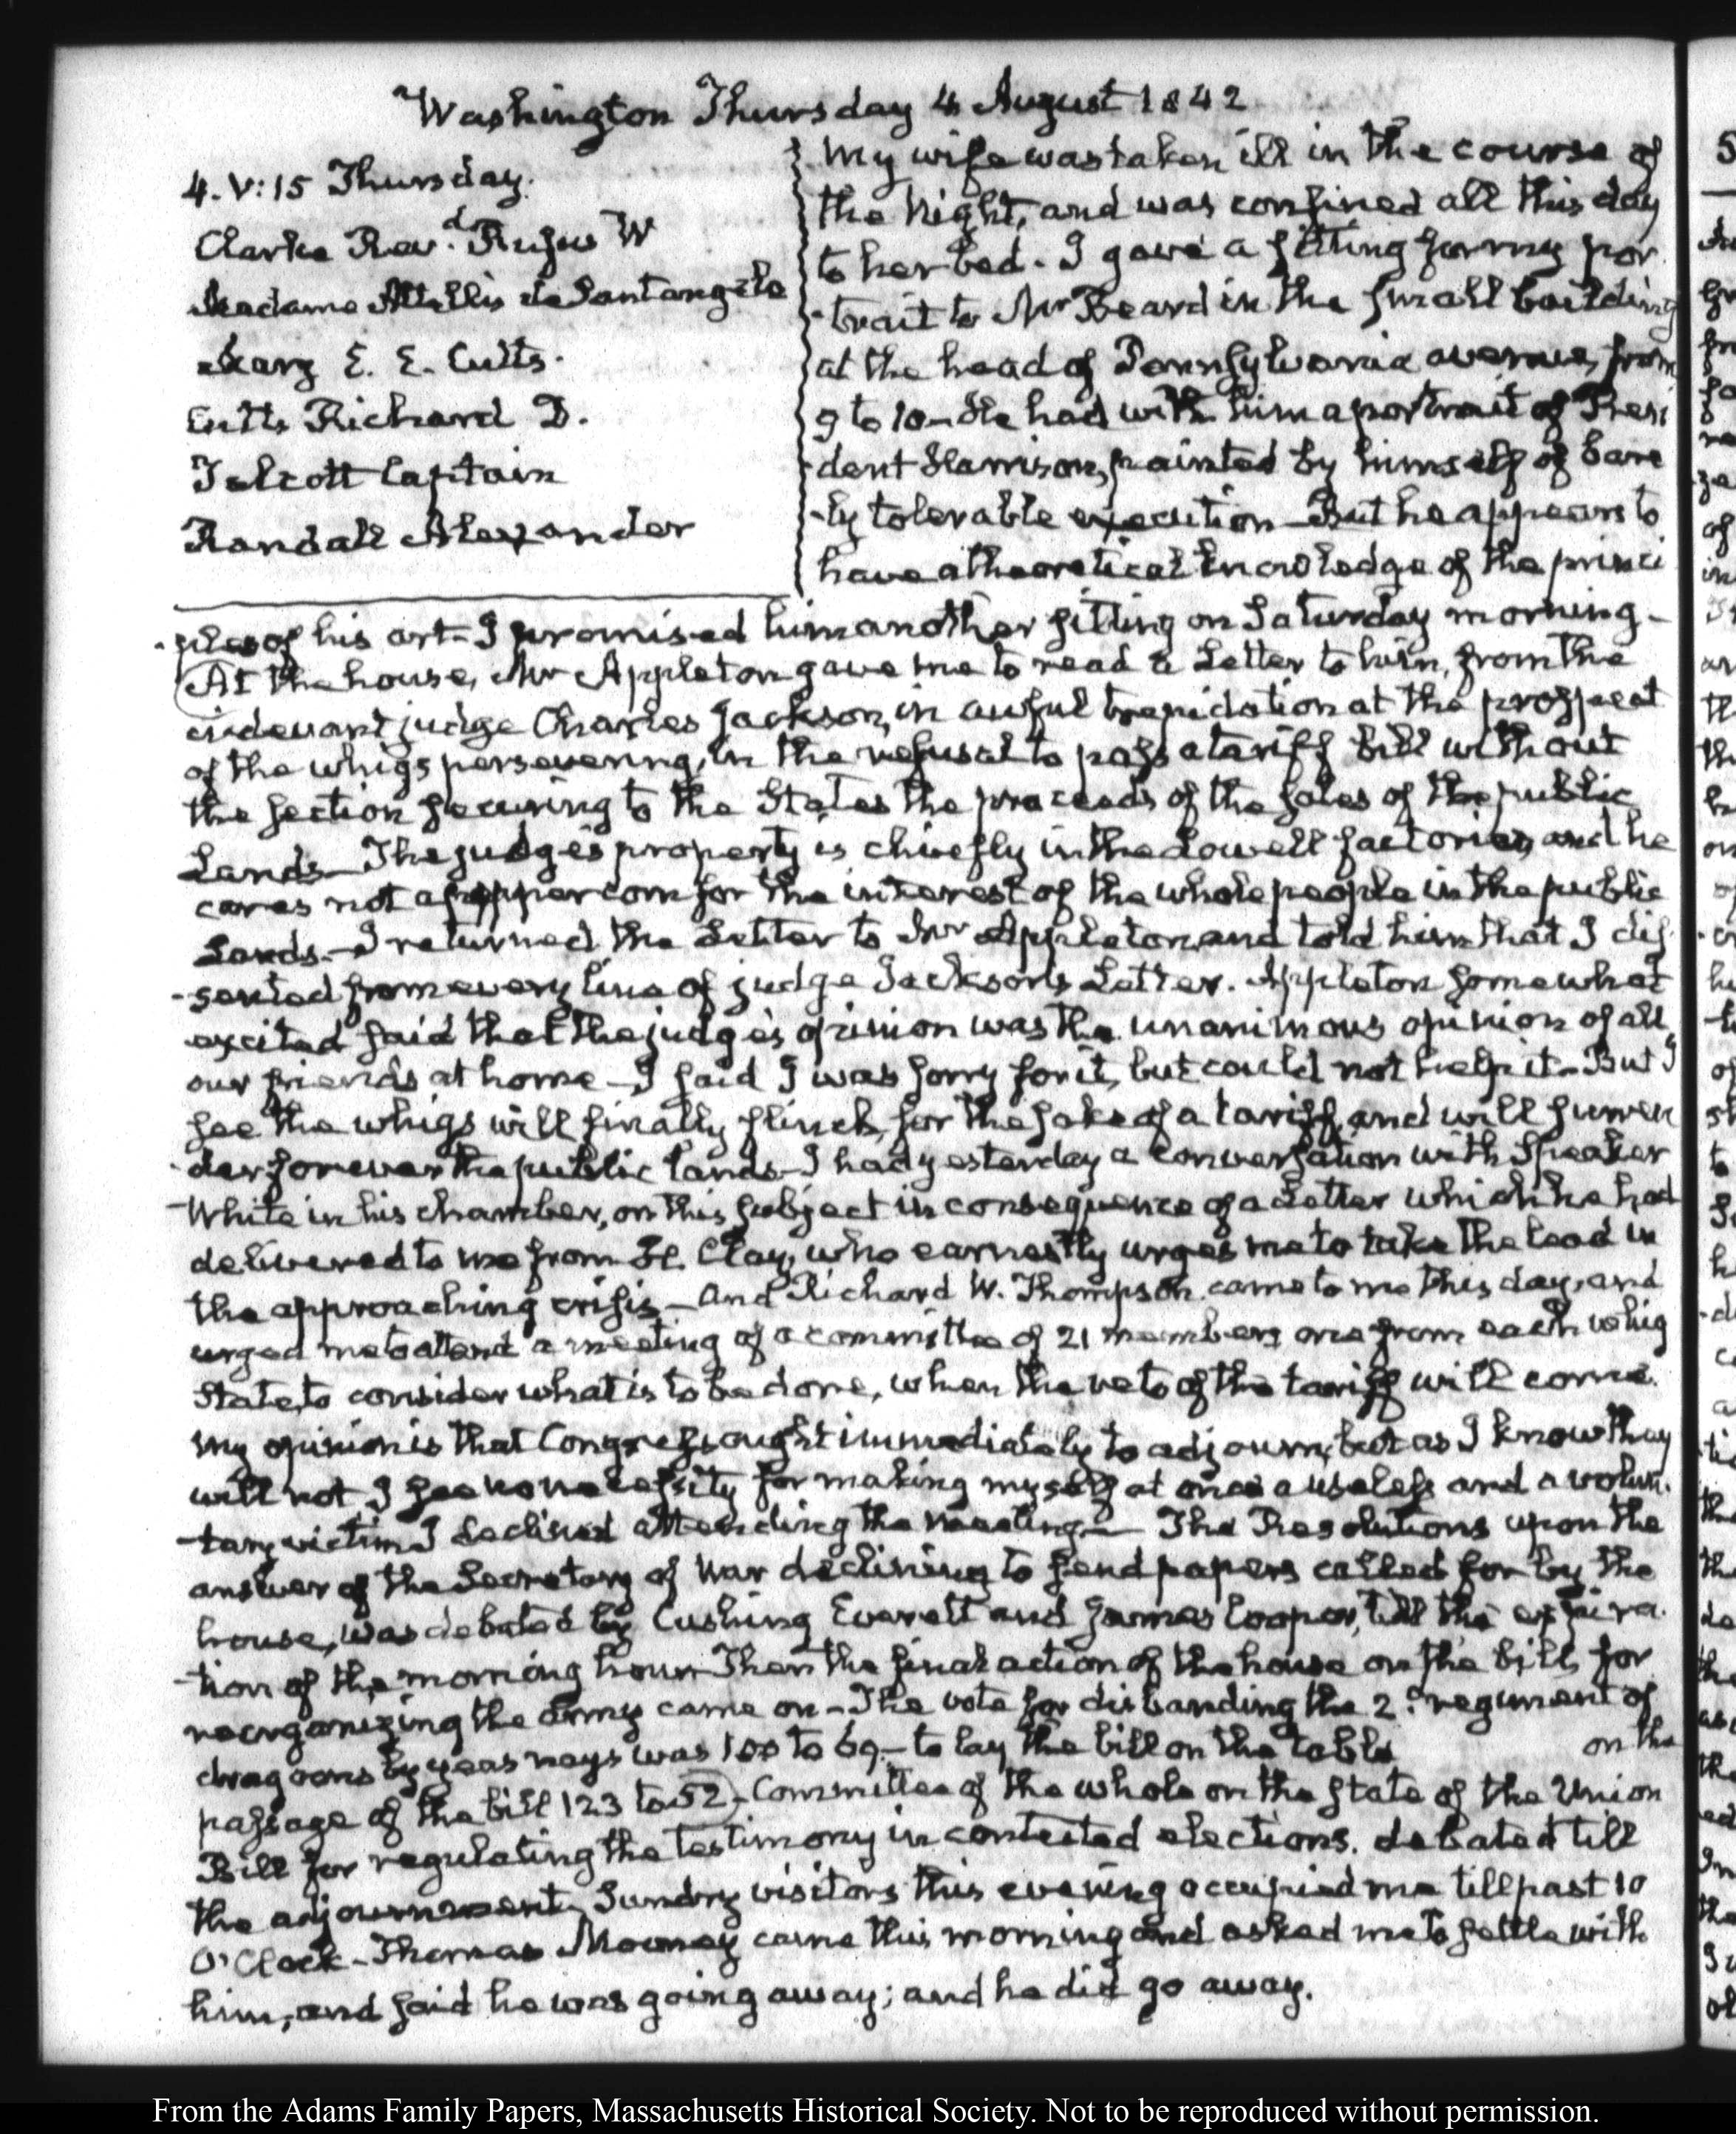 Washington Thursday 4 August 1842
4. V:15 Thursday.
Clarke Rev.d Rufus W
Madame Attellis de Santangelo
Mary E. E. Cutts.
Cutts Richard D.
Talcott Captain
Randall Alexander
My wife was taken ill in the course of
the Night, and was confined all this day
to her bed. I gave a sitting for my por
-trait to Mr Beard in the small building
at the head of Pennsylvania avenue, from
9 to 10 - He had with him a portrait of Presi
-dent Harrison, painted by himself of bare
-ly tolerable execution - But he appears to
have a theoretical knowledge of the princi
-ples of his art - I promised him another sitting on Saturday morning -
At the house, Mr Appleton gave me to read a Letter to him, from the
cidevant judge Charles Jackson, in awful trepidation at the prospect
of the whigs persevering, in the refusal to pass a tariff bill without
the section securing to the States the proceeds of the sales of the public
Lands - The judge's property is chiefly in the Lowell factories, and he
cares not a pepper corn for the interest of the whole people in the public
Lands. - I returned the Letter to Mr Appleton and told him that I dis
-sented from every line of judge Jackson's Letter. Appleton somewhat
excited said that the judge's opinion was the unanimous opinion of all
our friends at home - I said I was sorry for it, but could not help it - But I
see the whigs will finally flinch, for the sake of a tariff, and will surren
-der forever the public lands - I had yesterday a conversation with Speaker
White in his chamber, on this subject in consequence of a Letter which he had
delivered to me from H. Clay, who earnestly urges me to take the lead in
the approaching crisis - and Richard W. Thompson came to me this day, and
urged me to attend a meeting of a committee of 21 members one from each whig
State, to consider what is to be done, when the veto of the tariff will come.
My opinion is that Congress ought immediately to adjourn, but as I know they
will not I see no necessity for making myself at once a useless and a volun
-tary victim I declined attending the meeting - The Resolutions upon the
answer of the Secretary of War declining to send papers called for by the
house, was debated by Cushing Everett and James Cooper, till the expira
-tion of the morning hour Then the final action of the house on the bill for
reorganizing the Army came on - The vote for disbanding the 2.d regiment of
dragoons by yeas nays was 100 to 69. - to lay the bill on the table on the
passage of the bill 123 to 52 - Committee of the whole on the state of the Union
Bill for regulating the testimony in contested elections. debated till
the adjournment - Sundry visitors this evening occupied me till past 10
O'Clock - Thomas Mooney came this morning and asked me to settle with
him, and said he was going away; and he did go away.
From the Adams Family Papers, Massachusetts Historical Society. Not to be reproduced without permission.